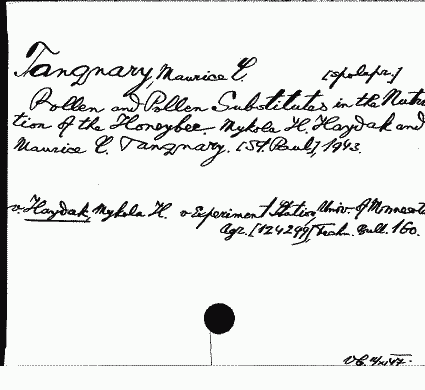 Tanqnary, Maurice C. [spolupr.]
Pollen and Pollen Substitutes in the Nutri-
tion of the Honeybee. Mykola H. Haydak and
Maurice C. Tanqnary. [St. Paul], 1943.
v. Haydak, Mykola H. v Experiment Station, Univ. of Minnesota
Agr. [124299] Techn. Bull. 160.